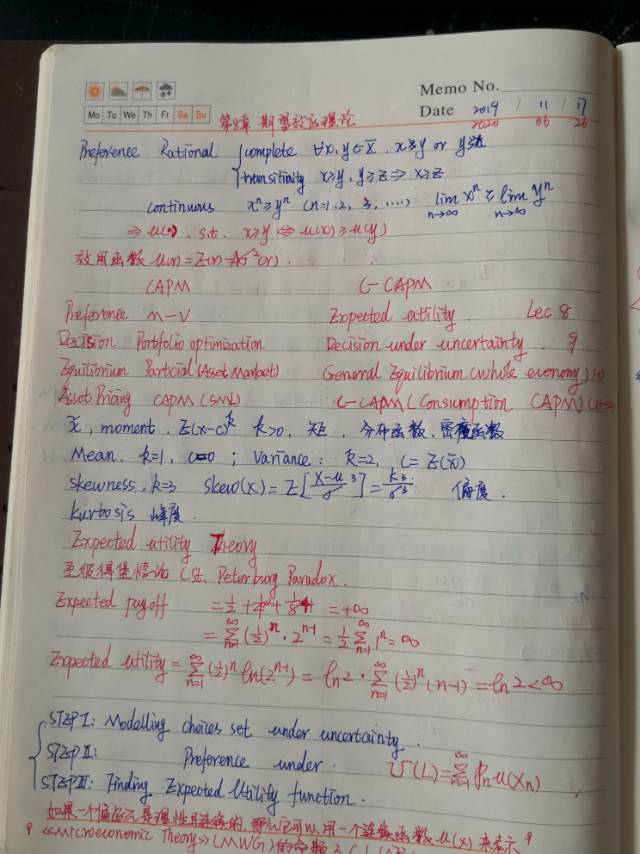 Memo No.
Mo Tu We Th Fr Sa Su
Date 2019 / 11 / 17
2020 06 26
第8章 期望效用理论
Preference Rational { complete ∀x,y∈X, x≥y or y≥x
transitivity x≥y, y≥z ⇒ x≥z
continuous xⁿ≥yⁿ (n=1,2,3,....), lim n→∞ xⁿ ≥ lim n→∞ yⁿ
⇒ u(·), s.t. x≥y ⇔ u(x)≥u(y)
效用函数
CAPM C-CAPM
Preference M-V Expected utility. Lec 8
Decision Portfolio optimization Decision under uncertainty. 9
Equilibrium Partial (Asset Market) General Equilibrium (whole economy) 10
Asset Pricing CAPM (SML) C-CAPM (Consumption CAPM)
x̃, moment, E(x-c)^k k>0, 矩, 分布函数, 密度函数
Mean, k=1, c=0; Variance: k=2, c=E(x̃)
skewness, k=3 skew(x) = E[(x-μ)³/σ³] = k₃/σ³ 偏度.
kurtosis 峰度.
Expected utility Theory
圣彼得堡悖论 (St. Peterburg Paradox.
Expected payoff = +∞
= ∑_{n=1}^∞ (1/2)^n · 2^{n-1} = 1/2 ∑_{n=1}^∞ 1^n = ∞
Expected utility = ∑_{n=1}^∞ (1/2)^n ln(2^{n-1}) = ln2 · ∑_{n=1}^∞ (1/2)^n (n-1) = ln2 < ∞
STEP I: Modelling choices set under uncertainty.
STEP II: Preference under. U(L) = ∑_{n=1}^∞ p_n u(x_n)
STEP III: Finding Expected Utility function.
如果一个偏好是理性且连续的, 那么它可以用一个连续函数 u(x) 来表示
《Microeconomic Theory》(MWG) 的命题